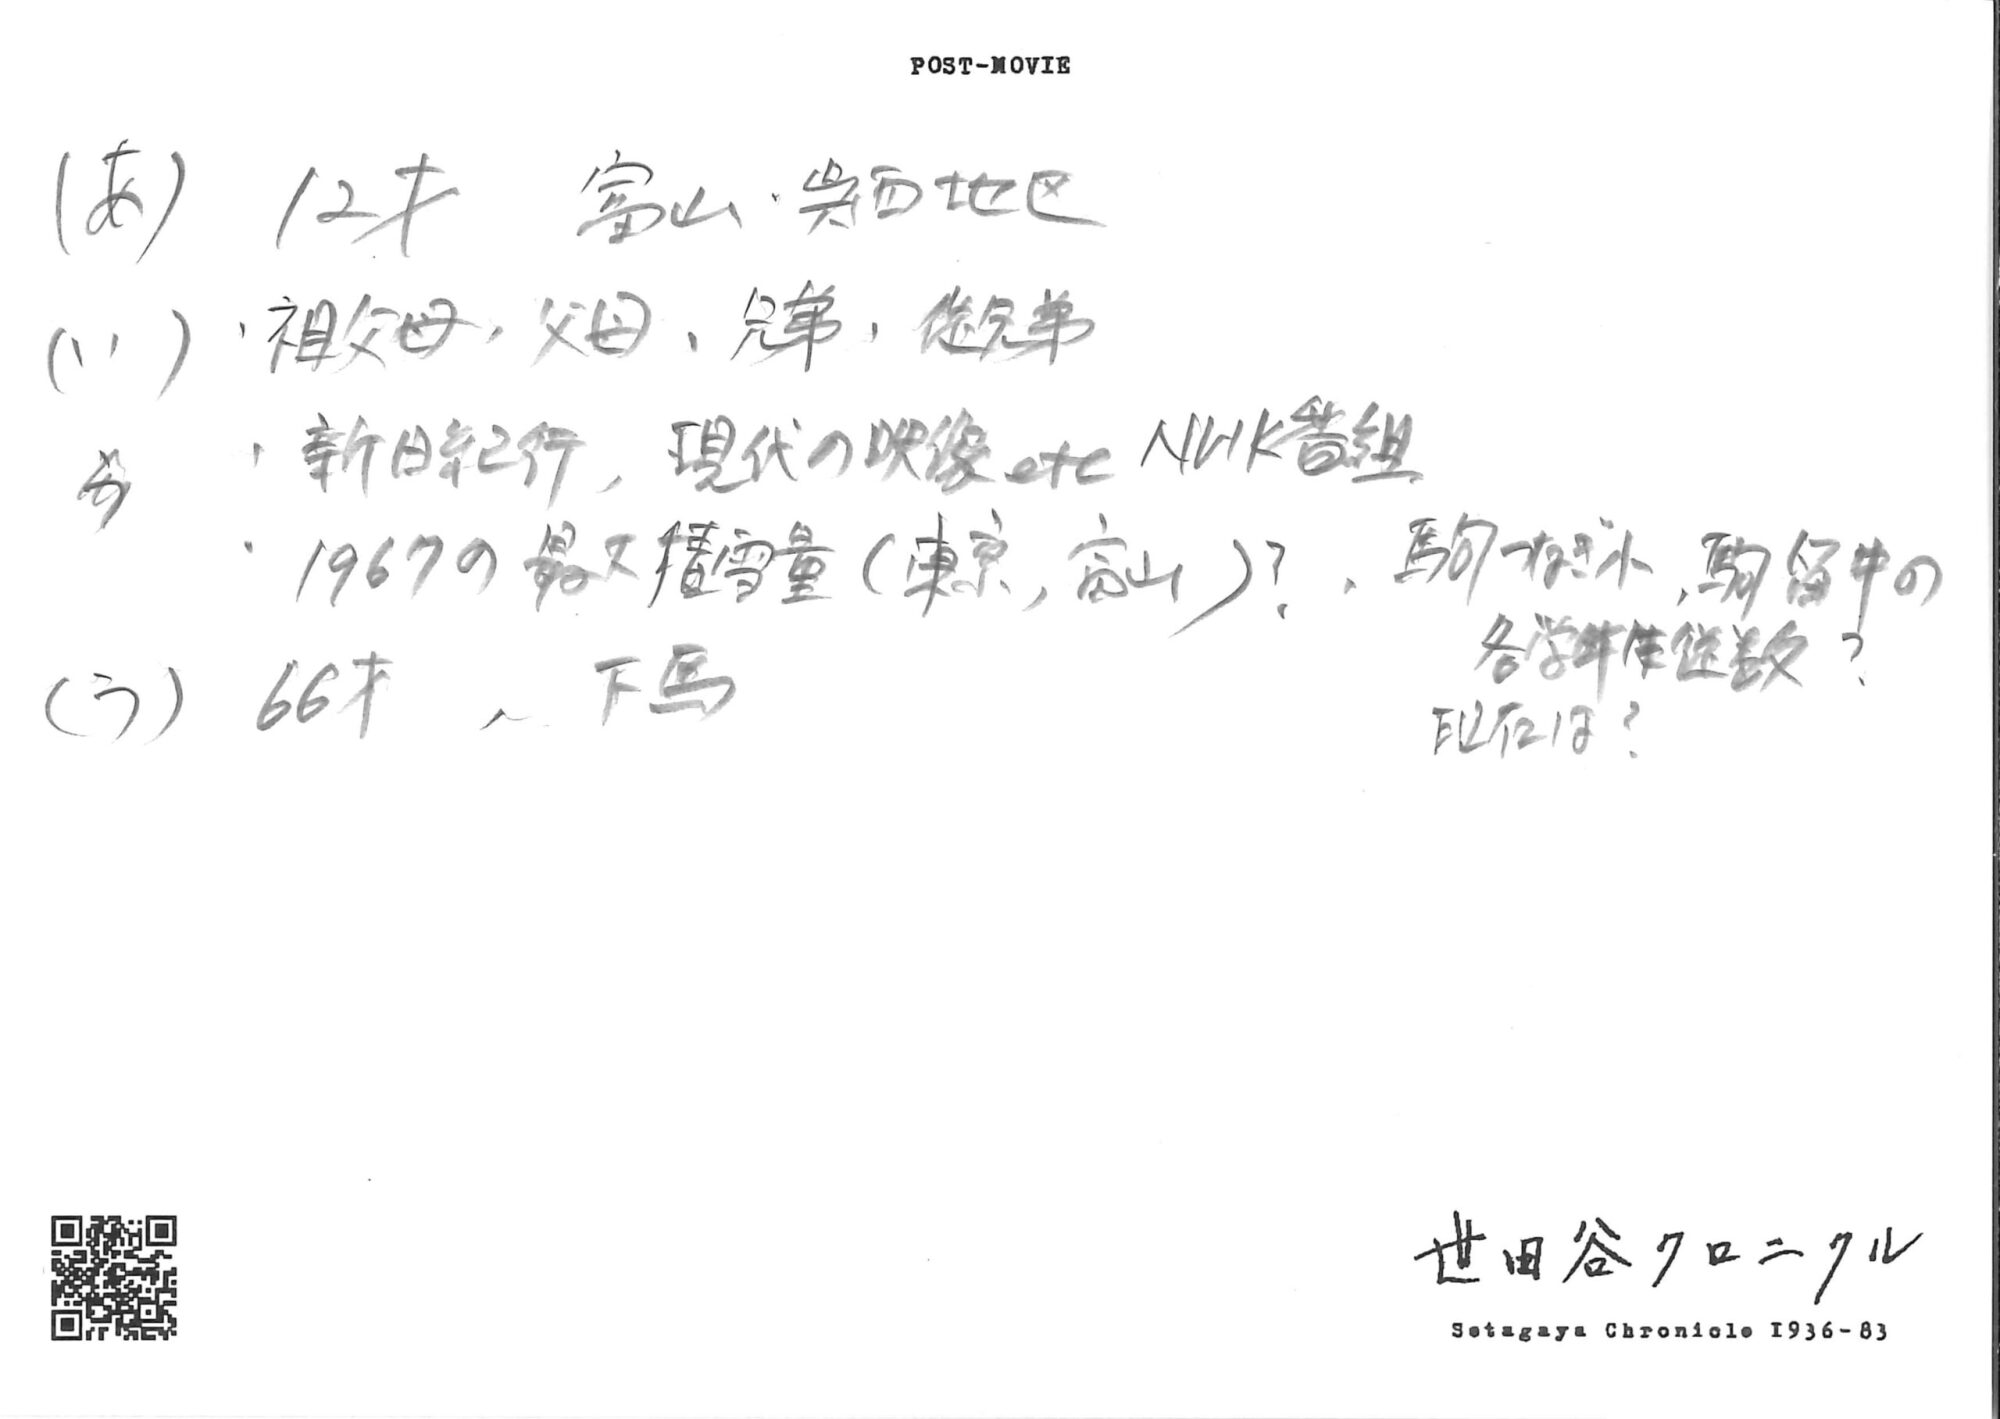 POST-MOVIE
(あ) 12才 富山・呉西地区
(い)・祖父母、父母、兄弟、従兄弟
・新日紀行、現代の映像etc NHK番組
・1967の最大積雪量(東京,富山)?、駒つなぎ小、駒留中の
各学年生徒数?
現在は?
(う) 66才 、下馬
世田谷クロニクル
Setagaya Chronicle 1936-83